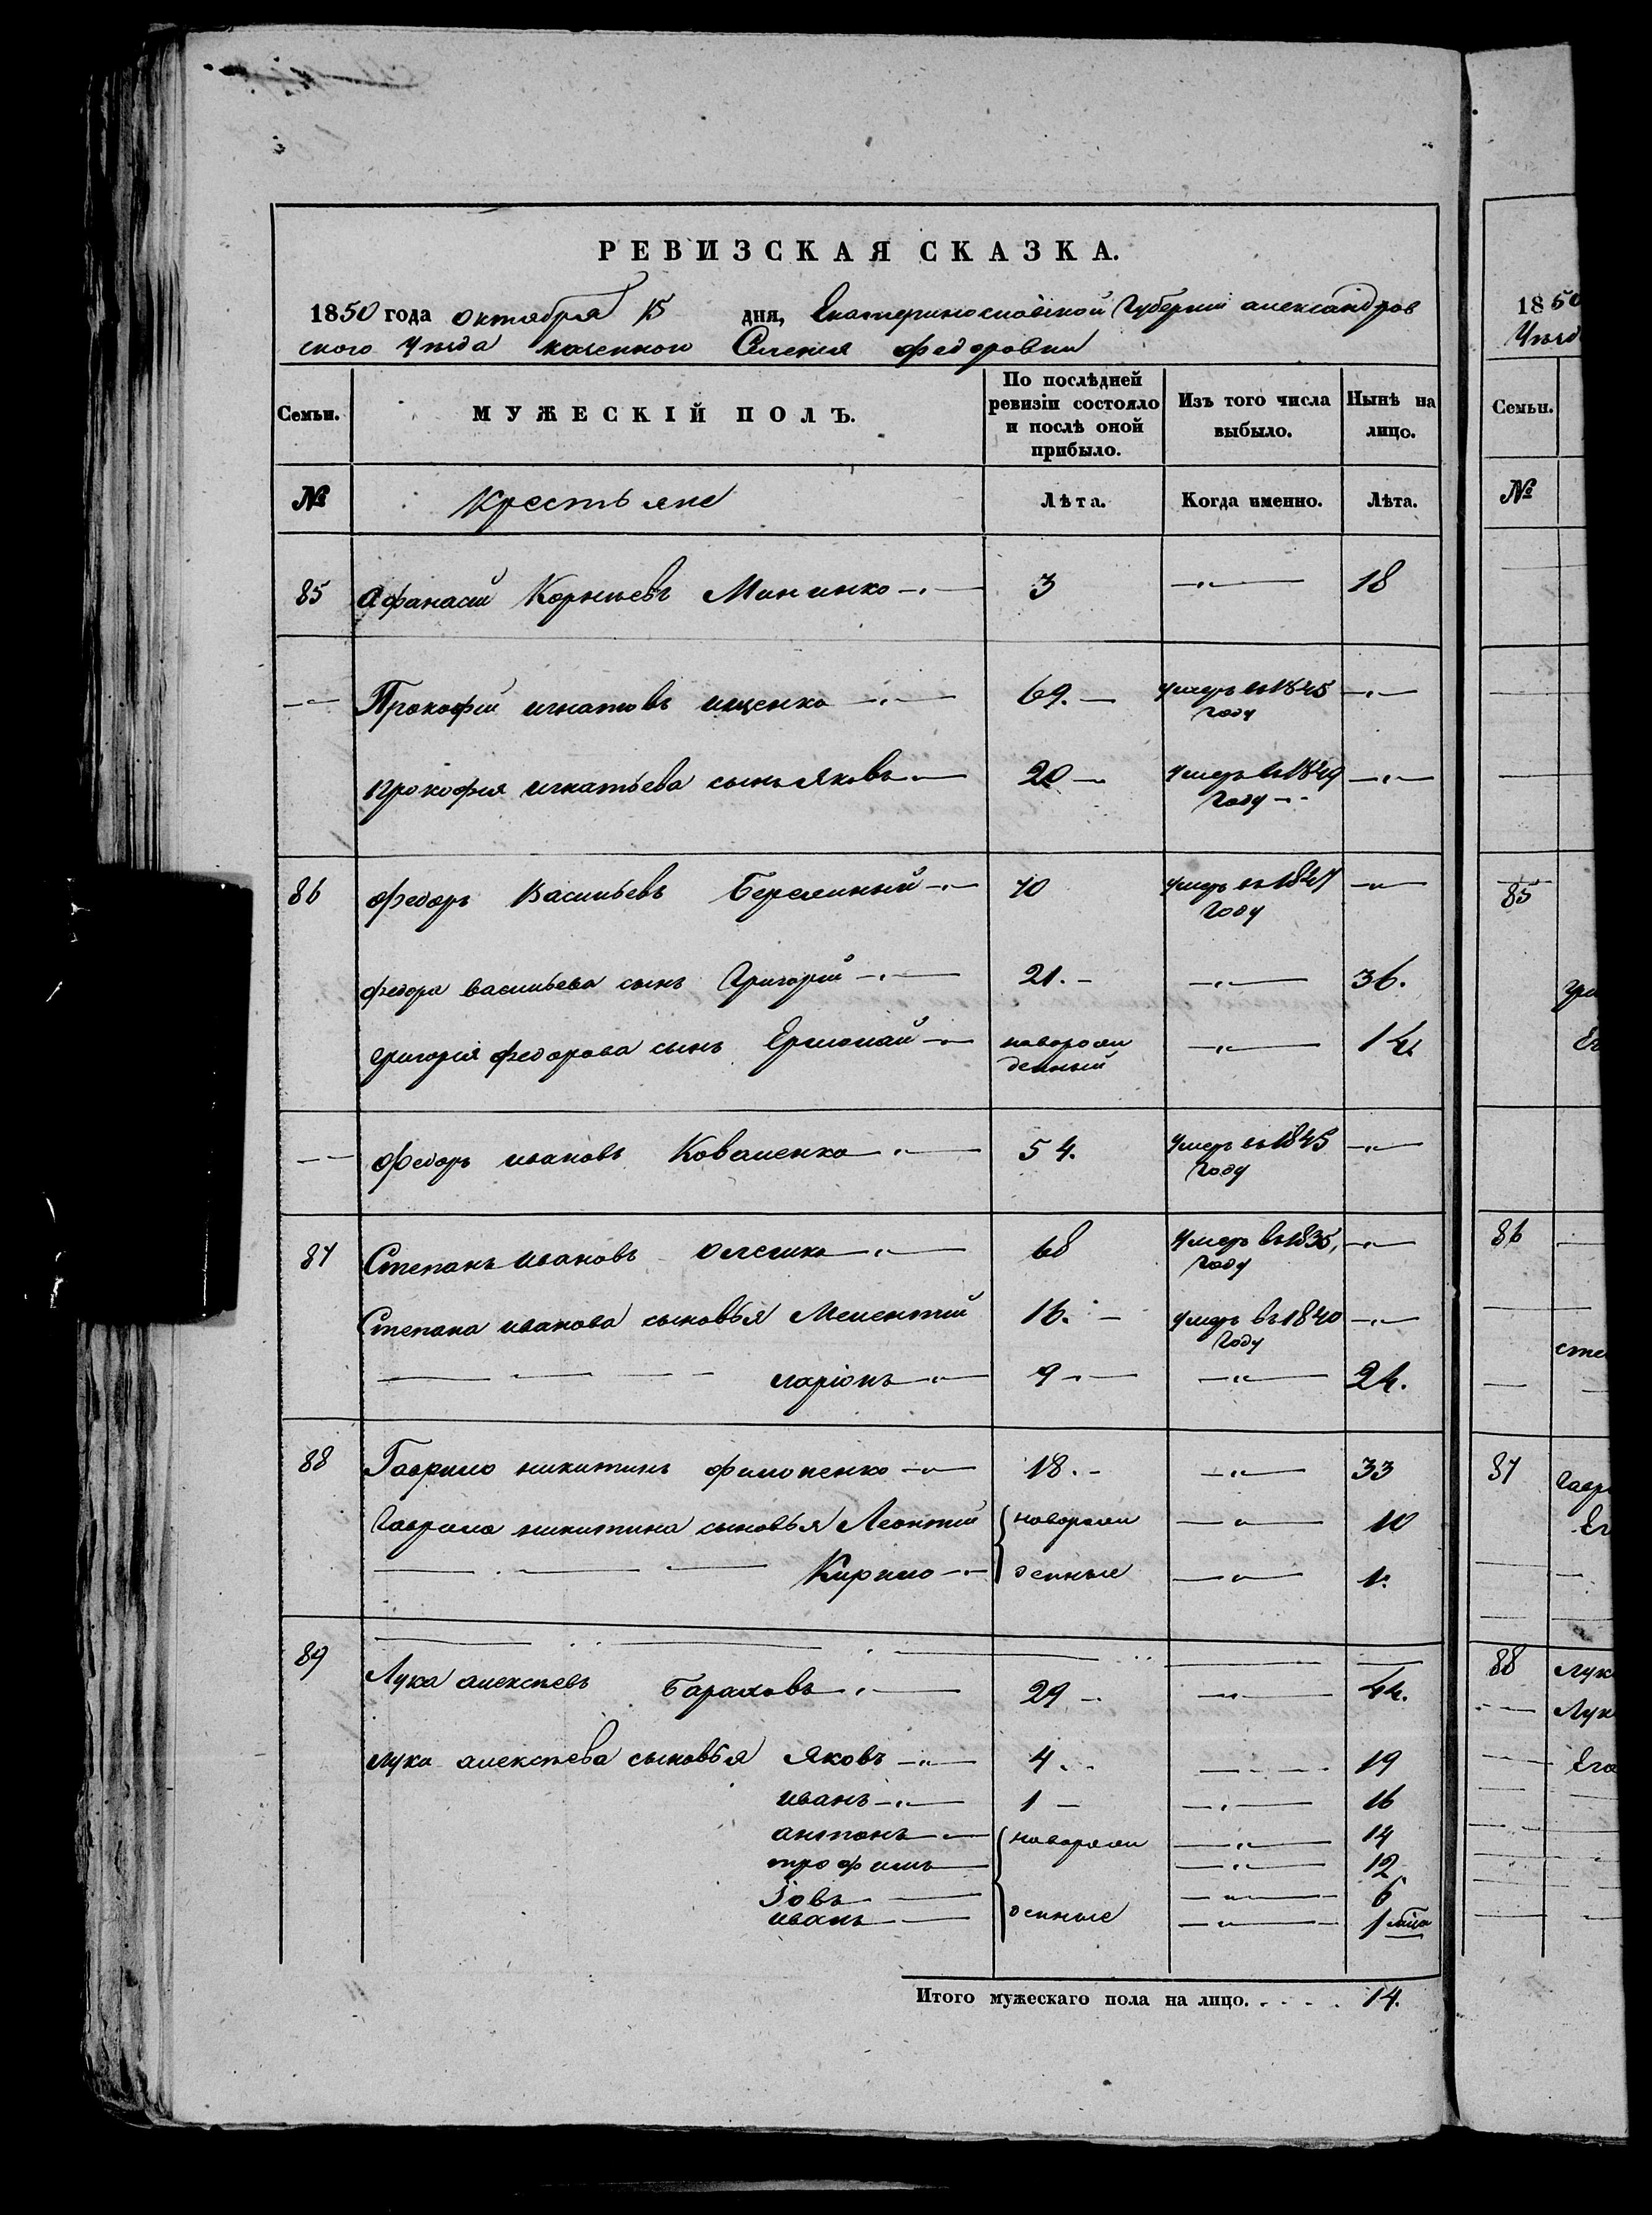 РЕВИЗСКАЯ СКАЗКА.
1850 года октября 15 дня, Екатеринославской Губернии александров
ского уезда казенного Селения федоровки
Семьи. МУЖЕСКІЙ ПОЛЪ. По послѣдней ревизіи состояло и послѣ оной прибыло. Изъ того числа выбыло. Нынѣ на лицо.
№ Крестьяне Лѣта. Когда именно. Лѣта.
85 Афанасий Корнѣевъ Мининко 3 18
Прокофій игнатовъ ищенко 69. умеръ въ 1845 году
прокофія игнатьева сынъ яковъ 20 умеръ въ 1849 году
86 федоръ Васильевъ 70 умеръ въ 1847 году
федора васильева сынъ Григорій 21. 36.
григорія федорова сынъ Ермолай новорож денный 14
федоръ ивановъ Коваленко 54. умеръ въ 1845 году
87 Степанъ ивановъ 68 умеръ въ 1835, году
Степана иванова сыновья Мелентій 16. умеръ въ 1840 году
ларіонъ 9 24.
88 Гаврило никитинъ филоненко 18. 33
Гаврила никитина сыновья Леонтій новорож 10
Кирило денные 1.
89 Лука алексѣевъ 29 44.
лука алексѣева сыновья яковъ 4 19
иванъ 1 16
антонъ новорож 14
трофимъ 12
Іовъ 6
иванъ денные 1
Итого мужескаго пола на лицо. . . . . 14.
1850
Уезд
Семьи.
№
85
гри
Ег
86
сте
87 Гавр
Ег
88 лук
Лук
Его